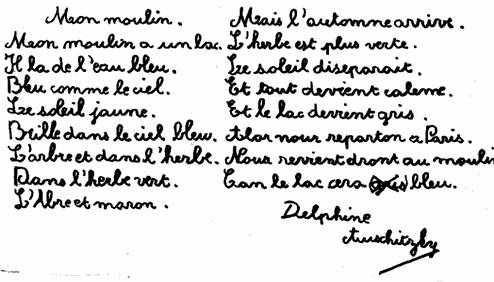 Mon moulin.
Mon moulin a un lac.
Il la de l'eau bleu.
Bleu comme le ciel.
Le soleil jaune.
Brille dans le ciel bleu.
L'arbre et dans l'herbe.
Dans l'herbe vert.
L'Abre et maron.
Mais l'automne arrive.
L'herbe est plus verte.
Le soleil disparait.
Et tout devient calme.
Et le lac devient gris.
Alor nour reparton a Paris.
Nous revient dront au moulin
Can le lac cera gris bleu.
Delphine